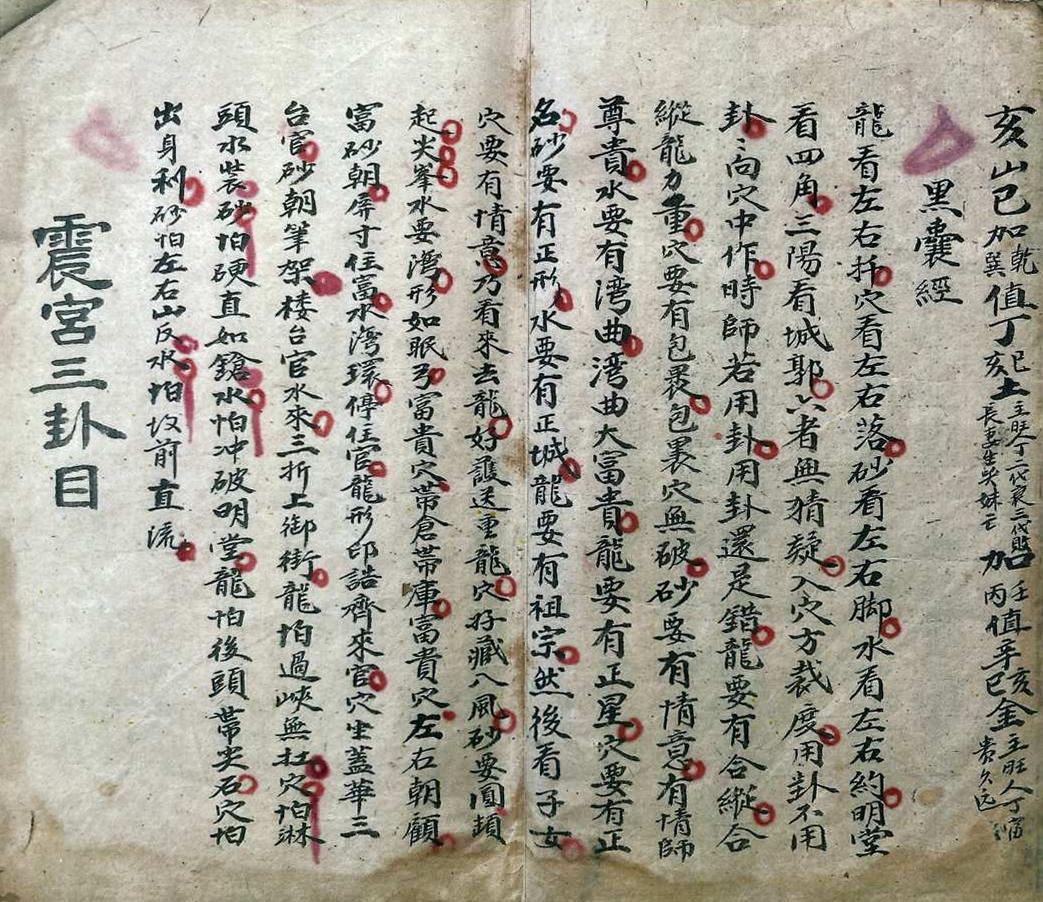 亥山巳加乾巽值丁巳亥土主旺人丁二代衰三代敗長妻生哭妹亡加壬丙值辛巳亥金主旺人丁富貴久远
黑囊經
龍看左右扦穴看左右落砂看左右脚水看左右約明堂
看四角三陽看城郭六者無猜疑入穴方裁度用卦不用
卦卦向穴中作時師若用卦用卦還是錯龍要有合縱合
縱龍力量穴要有包裹包裹穴無破砂要有情意有情師
尊貴水要有湾曲湾曲大富貴龍要有正星穴要有正
名砂要有正形水要有正城龍要有祖宗然後看子女
穴要有情意乃看來去龍好護送重龍穴好藏八風砂要圓頭
起尖峯水要湾形如眠弓富貴穴帶倉帶庫富貴穴左右朝顧
富砂朝屏寸住富水湾環停住官龍形印誥齊來官穴坐蓋華三
台官砂朝筆架楼台官水來三折上御街龍怕過峽無扛穴怕淋
頭水装砂怕硬直如鎗水怕冲破明堂龍怕後頭帶尖石穴怕
出身利砂怕左右山反水怕坟前直流
震宮三卦目